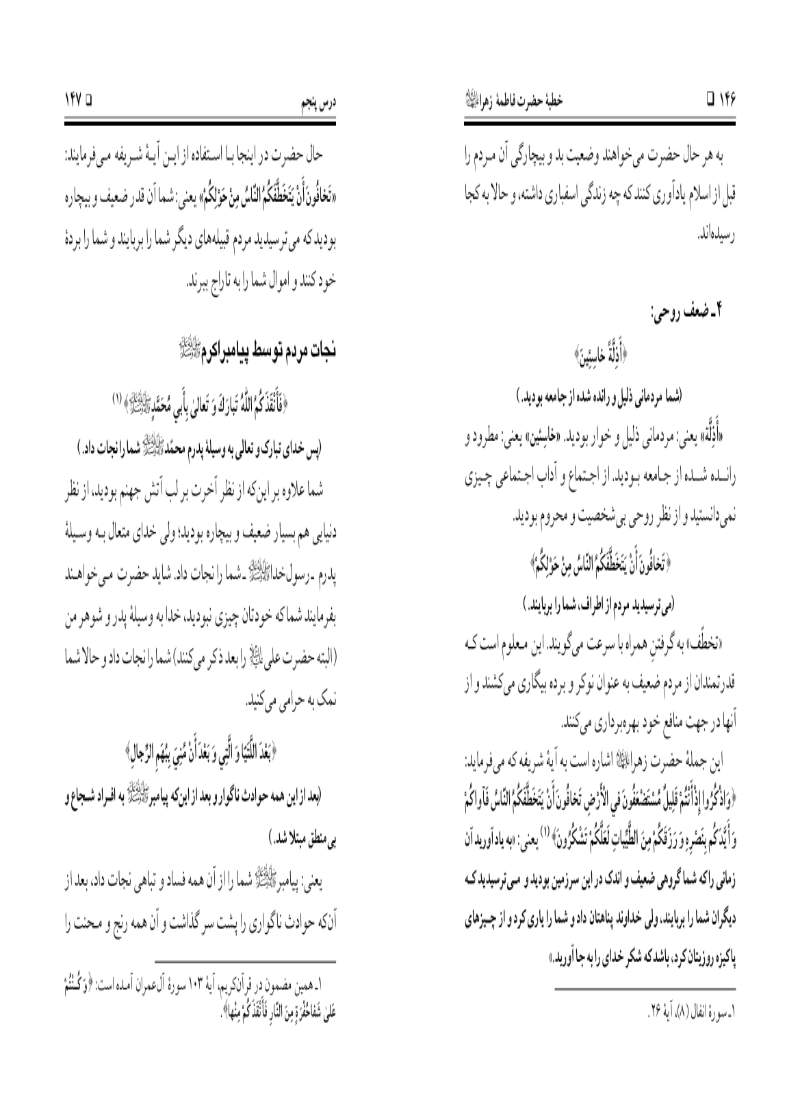 ۱۴۶ ❑ خطبهٔ حضرت فاطمهٔ زهرا
به هر حال حضرت می‌خواهند وضعیت بد و بیچارگی آن مردم را
قبل از اسلام یادآوری کنند که چه زندگی اسفباری داشته، و حالا به کجا
رسیده‌اند.
۴ـ ضعف روحی:
﴿أَذِلَّةً خاسِئِينَ﴾
(شما مردمانی ذلیل و رانده شده از جامعه بودید.)
«أَذِلَّة» یعنی: مردمانی ذلیل و خوار بودید. «خاسِئین» یعنی: مطرود و
رانـده شـده از جامعه بـودید. از اجتماع و آداب اجتماعی چـیزی
نمی‌دانستید و از نظر روحی بی‌شخصیت و محروم بودید.
﴿تَخافُونَ أَنْ يَتَخَطَّفَكُمُ النّاسُ مِنْ حَوْلِكُمْ﴾
(می‌ترسیدید مردم از اطراف، شما را بربایند.)
«تخطّف» به گرفتنِ همراه با سرعت می‌گویند. این مـعلوم است کـه
قدرتمندان از مردم ضعیف به عنوان نوکر و برده بیگاری می‌کشند و از
آنها در جهت منافع خود بهره‌برداری می‌کنند.
این جملهٔ حضرت زهرا اشاره است به آیهٔ شریفه که می‌فرماید:
﴿وَاذْكُرُوا إِذْ أَنْتُمْ قَلِيلٌ مُسْتَضْعَفُونَ فِي الْأَرْضِ تَخافُونَ أَنْ يَتَخَطَّفَكُمُ النّاسُ فَآواكُمْ
وَ أَيَّدَكُمْ بِنَصْرِهِ وَ رَزَقَكُمْ مِنَ الطَّيِّباتِ لَعَلَّكُمْ تَشْكُرُونَ﴾ (۱) یعنی: «به یاد آورید آن
زمانی را که شما گروهی ضعیف و اندک در این سرزمین بودید و مـی‌ترسیدید کـه
دیگران شما را بربایند، ولی خداوند پناهتان داد و شما را یاری کرد و از چـیزهای
پاکیزه روزیتان کرد، باشد که شکر خدای را به جا آورید.»
۱ـ سورهٔ انفال (۸)، آیهٔ ۲۶.
درس پنجم ❑ ۱۴۷
حال حضرت در اینجا بـا استفاده از ایـن آیـهٔ شـریفه مـی‌فرمایند:
«تَخافُونَ أَنْ يَتَخَطَّفَكُمُ النّاسُ مِنْ حَوْلِكُمْ» یعنی: شما آن قدر ضعیف و بیچاره
بودید که می‌ترسیدید مردم قبیله‌های دیگر شما را بربایند و شما را بردهٔ
خود کنند و اموال شما را به تاراج ببرند.
نجات مردم توسط پیامبراکرم
﴿فَأَنْقَذَكُمُ اللّٰهُ تَبارَكَ وَ تَعالىٰ بِأَبِي مُحَمَّدٍ﴾ (۱)
(پس خدای تبارک و تعالی به وسیلهٔ پدرم محمّد شما را نجات داد.)
شما علاوه بر این‌که از نظر آخرت بر لب آتش جهنم بودید، از نظر
دنیایی هم بسیار ضعیف و بیچاره بودید؛ ولی خدای متعال بـه وسـیلهٔ
پدرم ـ رسول‌خدا ـ شما را نجات داد. شاید حضرت مـی‌خواهـند
بفرمایند شما که خودتان چیزی نبودید، خدا به وسیلهٔ پدر و شوهر من
(البته حضرت علی را بعد ذکر می‌کنند) شما را نجات داد و حالا شما
نمک به حرامی می‌کنید.
﴿بَعْدَ اللَّتَيّا وَ الَّتِي وَ بَعْدَ أَنْ مُنِيَ بِبُهَمِ الرِّجالِ﴾
(بعد از این همه حوادث ناگوار و بعد از این‌که پیامبر به افـراد شـجاع و
بی‌منطق مبتلا شد.)
یعنی: پیامبر شما را از آن همه فساد و تباهی نجات داد، بعد از
آن‌که حوادث ناگواری را پشت سر گذاشت و آن همه رنج و مـحنت را
۱ـ همین مضمون در قرآن‌کریم، آیهٔ ۱۰۳ سورهٔ آل‌عمران آمـده است: ﴿وَ كُـنْتُمْ
عَلىٰ شَفاحُفْرَةٍ مِنَ النّارِ فَأَنْقَذَكُمْ مِنْها﴾.